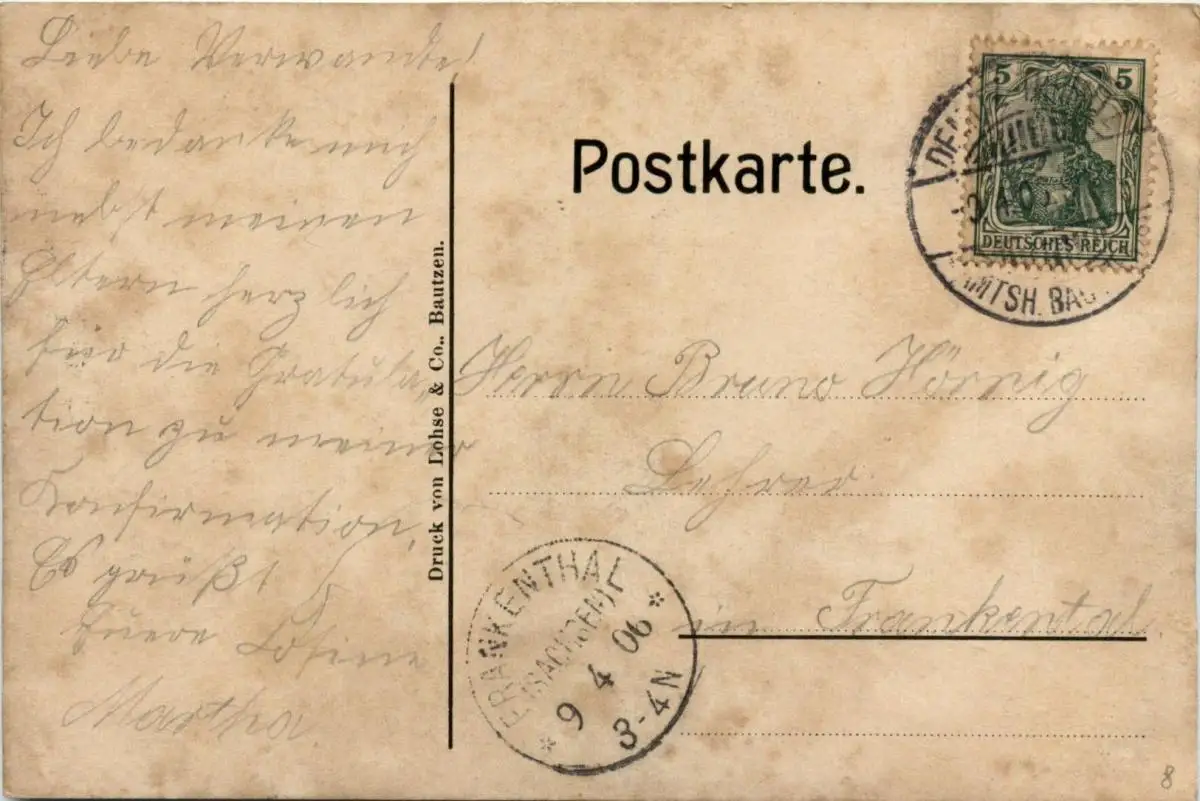 Liebe Verwandte!
Ich bedanke mich
nebst meinen
Eltern herzlich
für die Gratula-
tion zu meiner
Konfirmation.
Es grüßt
Euere Cosine
Martha
Druck von Lohse & Co., Bautzen.
Postkarte.
5 5
DEUTSCHES REICH
AMTSH. BAU
Herrn Bruno Hörnig
Lehrer
in Frankental
FRANKENTHAL
(SACHSEN)
9 4 06
3-4N
8